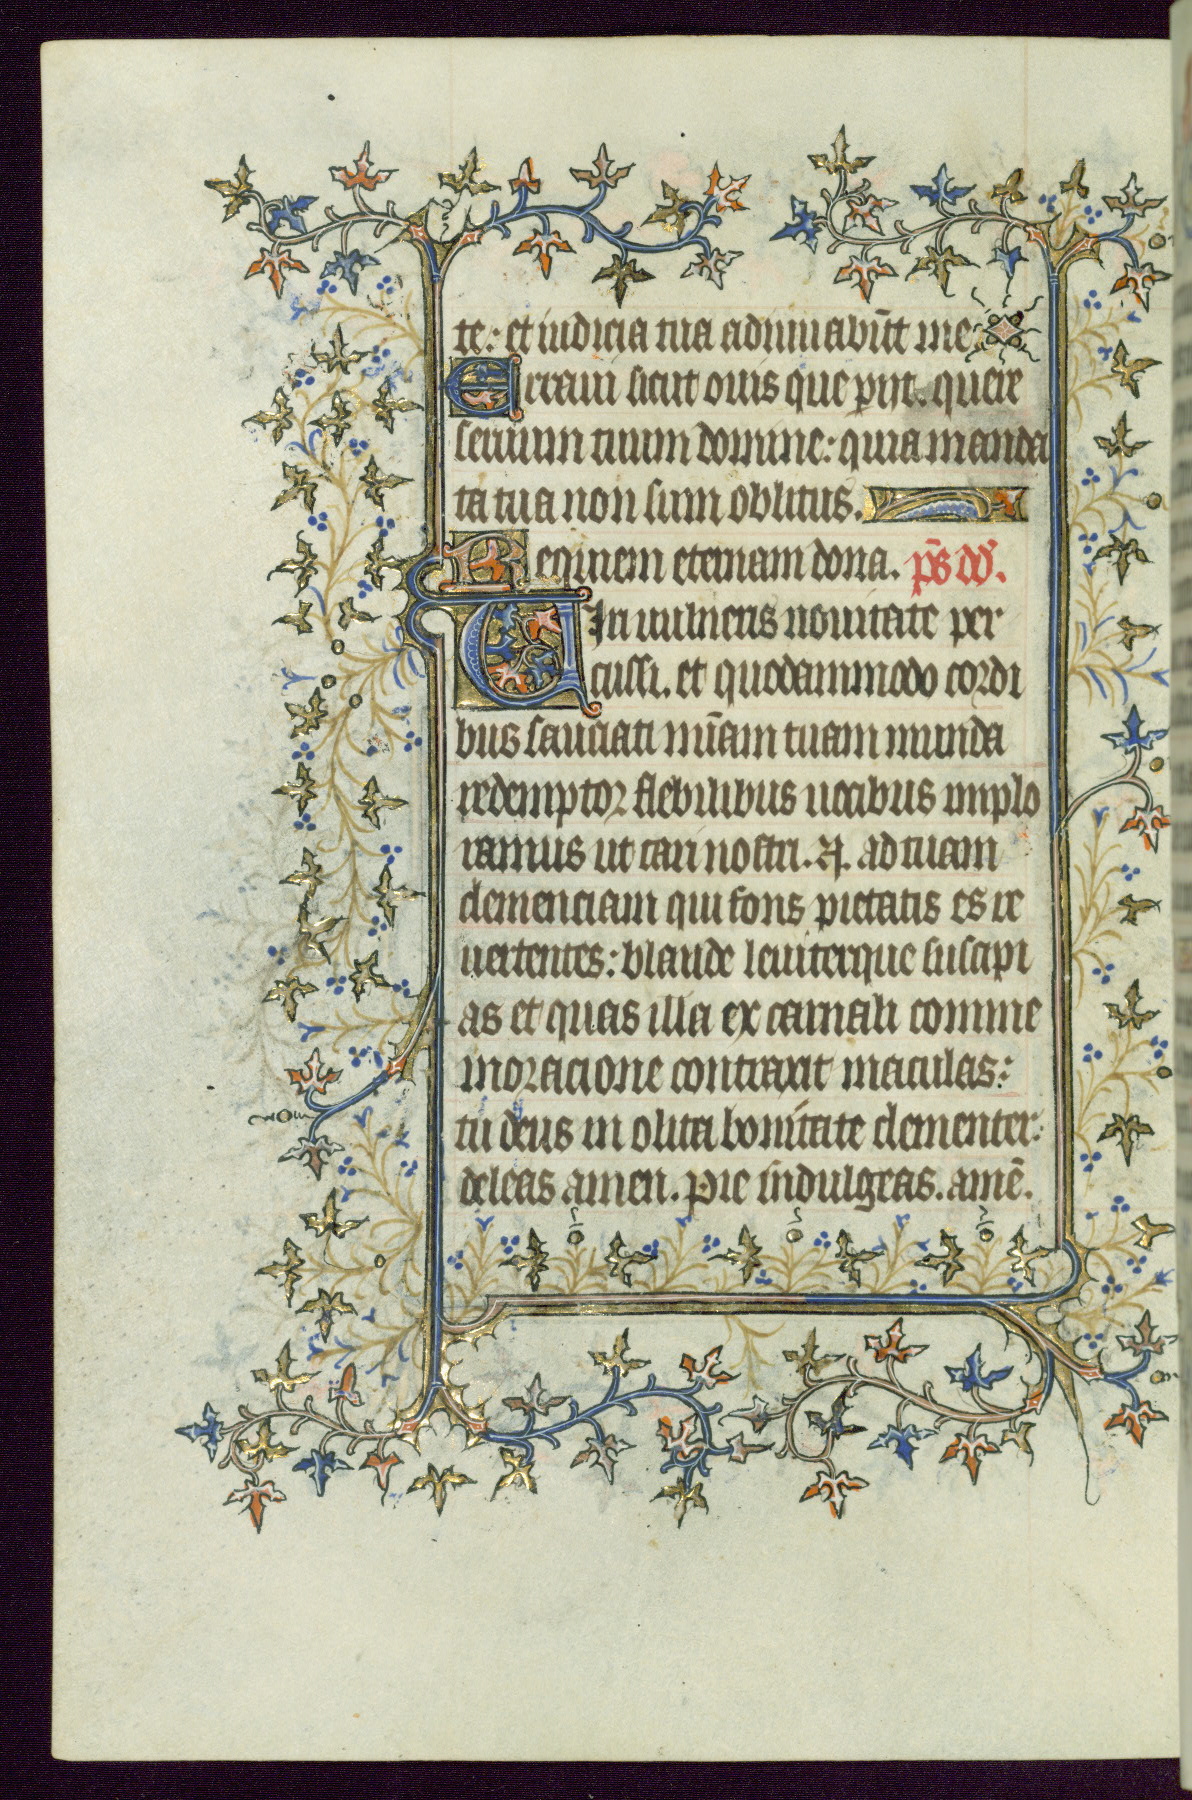 te: et iudicia tua adiuuabūt me
Erraui sicut ouis que perijt. quere
seruum tuum domine: quia manda
ta tua non sum oblitus.
Requiem eternam dona. p̄s dd̄.
Tu in uulneris nouitate per
cussi. et quodammodo cordi
bus sauciati mīam tuam munda
redemptor flebilibus uocibus implo
ramus ut cari nostri. N. ad tuam
clemenciam qui fons pietatis es re
uertentes: blande leuiterque suscipi
as et quas illa ex carnali comme
moracione contraxit maculas:
tu deus in olita bonitate clementer:
deleas amen. pie indulgeas. amē.